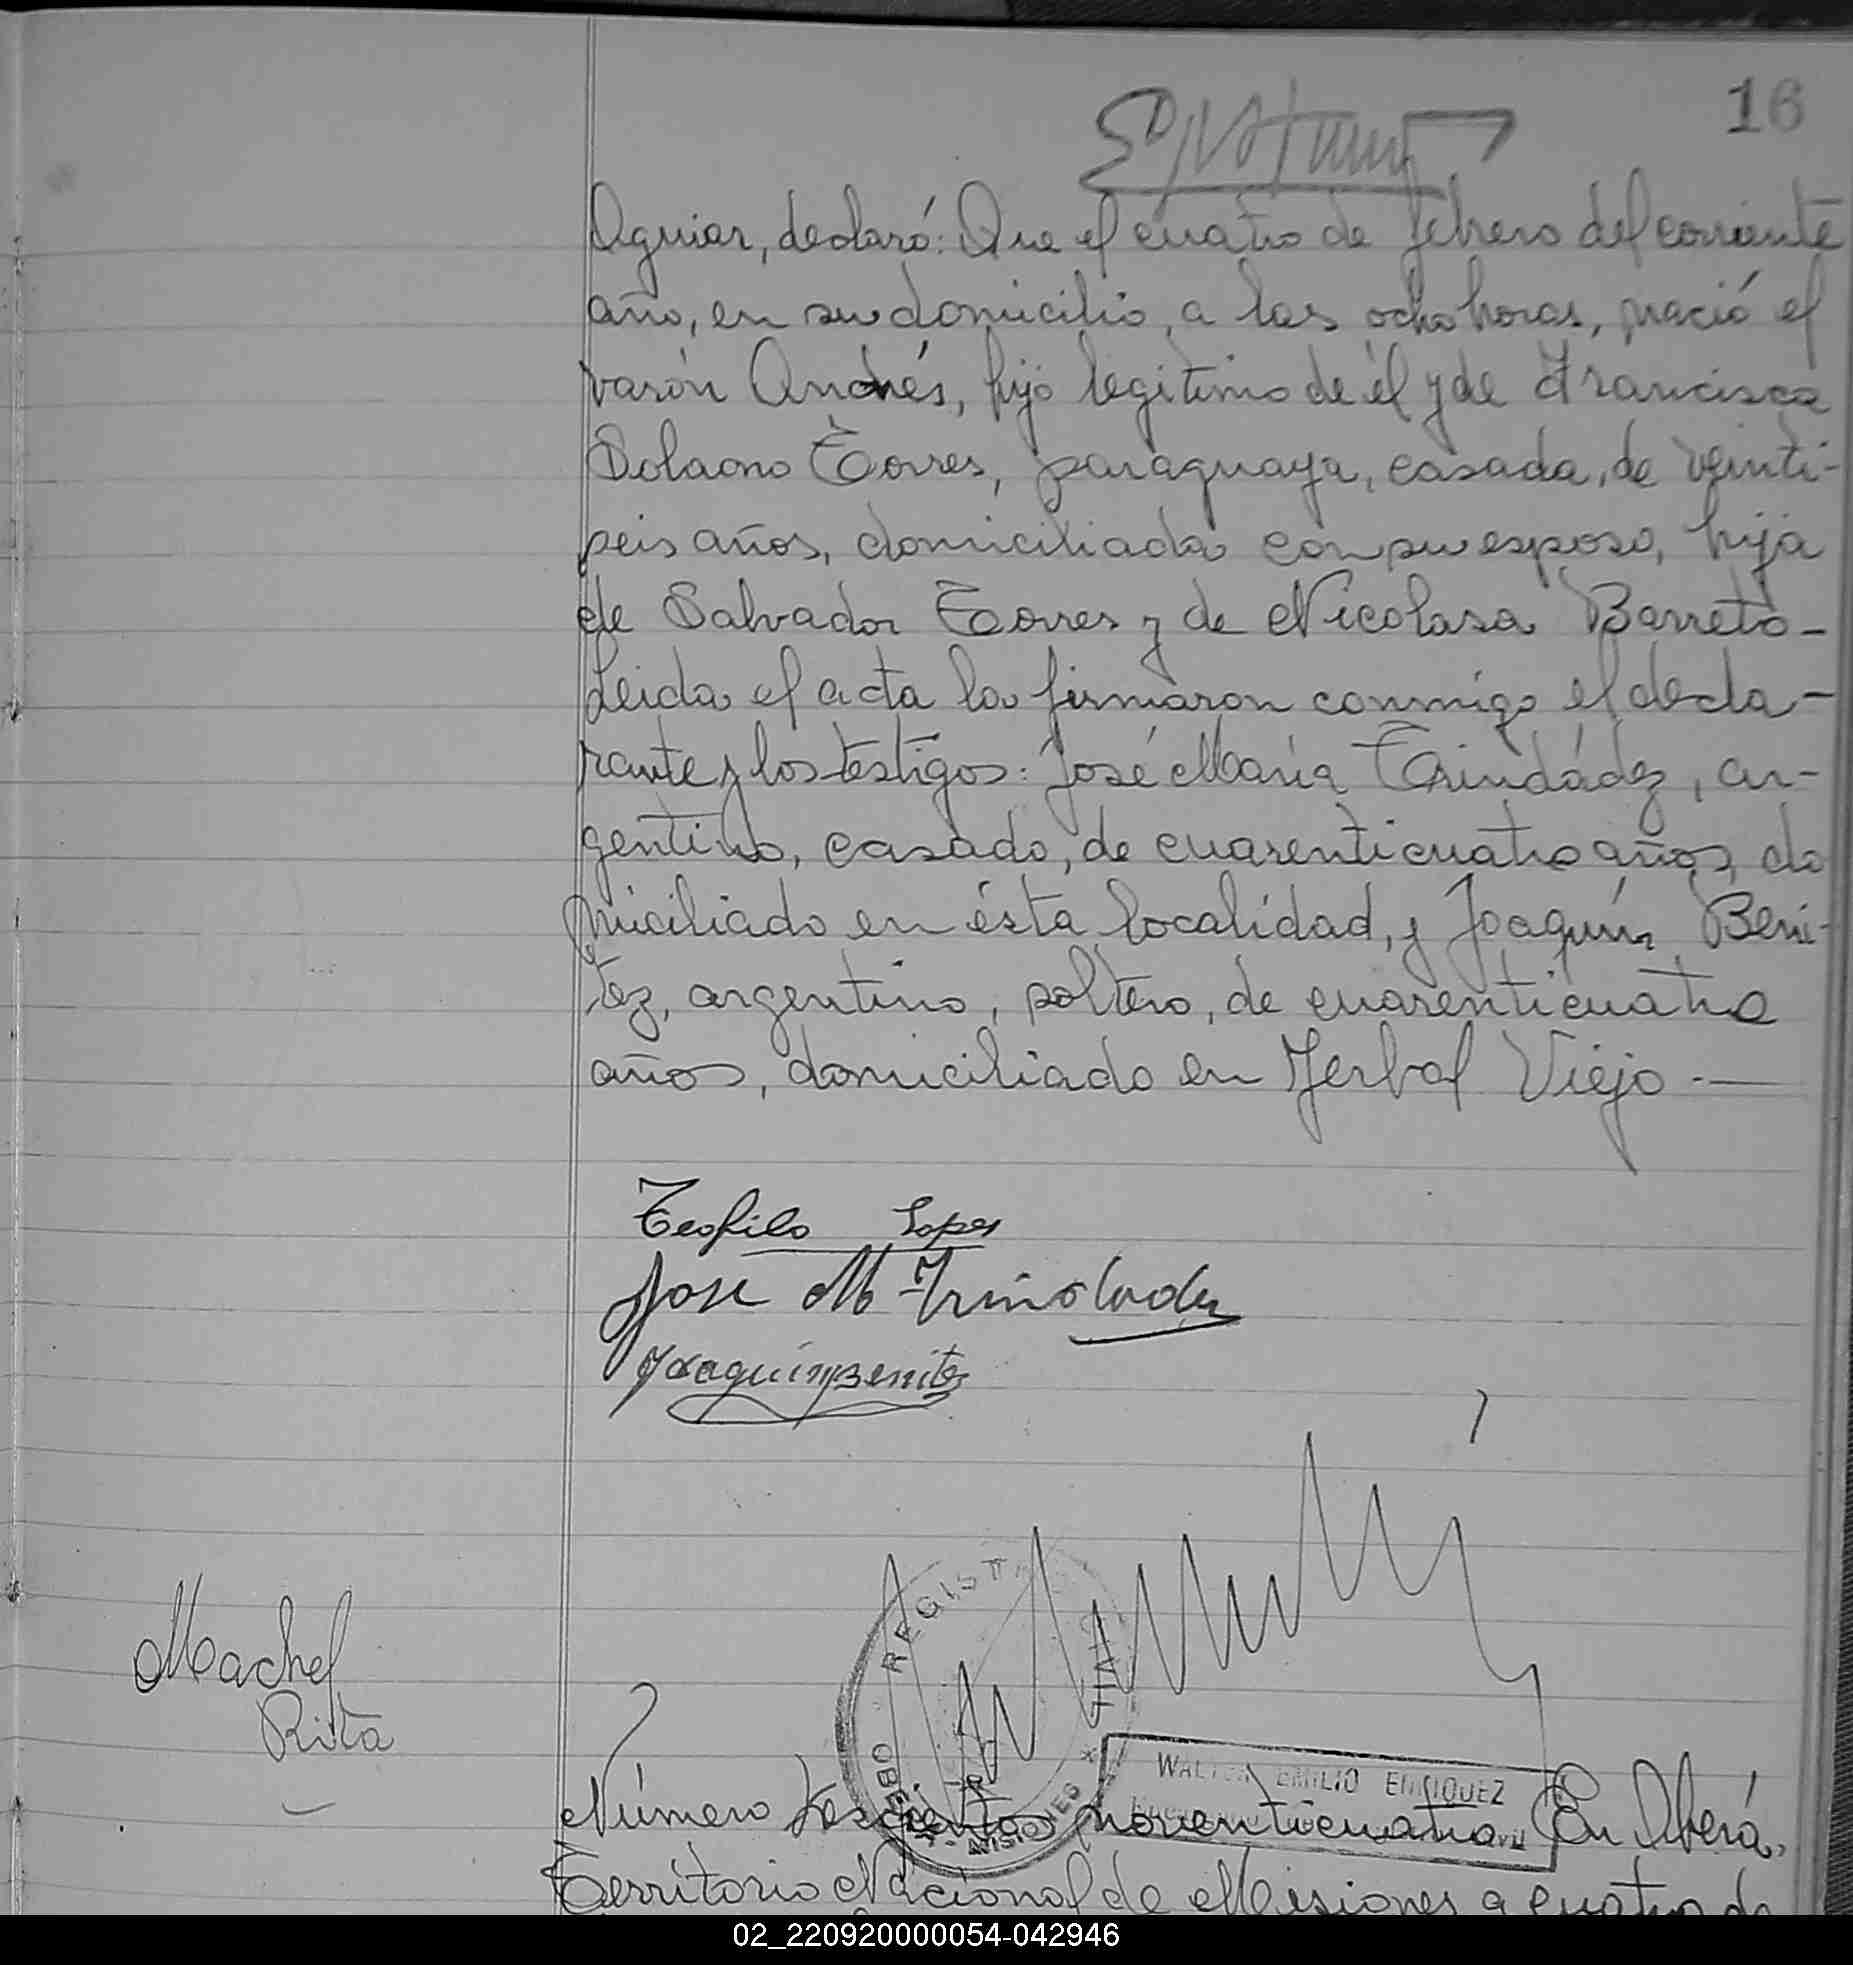 16
Aguiar, declaró: Que el cuatro de febrero del corriente
año, en su domicilio, a las ocho horas, nació el
varón Andrés, hijo legitimo de él y de Francisca
Solano Torres, paraguaya, casada, de veinti-
seis años, domiciliada con su esposo, hija
de Salvador Torres y de Nicolasa Barreto-
Leida el acta la firmaron conmigo el decla-
rante y los testigos: José María Trindádez, ar-
gentino, casado, de cuarenticuatro años, do
miciliado en ésta localidad, y Joaquín Beni-
tez, argentino, soltero, de cuarenticuatro
años, domiciliado en Yerbal Viejo.-
Teofilo Lopes
Jose M Trindadez
Joaquin Benitez
REGISTRO CIVIL
OBERÁ - MISIONES *
WALTER EMILIO ENRIQUEZ
Machel
Rita
Número trescientos noventicuatro En Oberá,
Territorio Nacional de Misiones a cuatro de
02_220920000054-042946